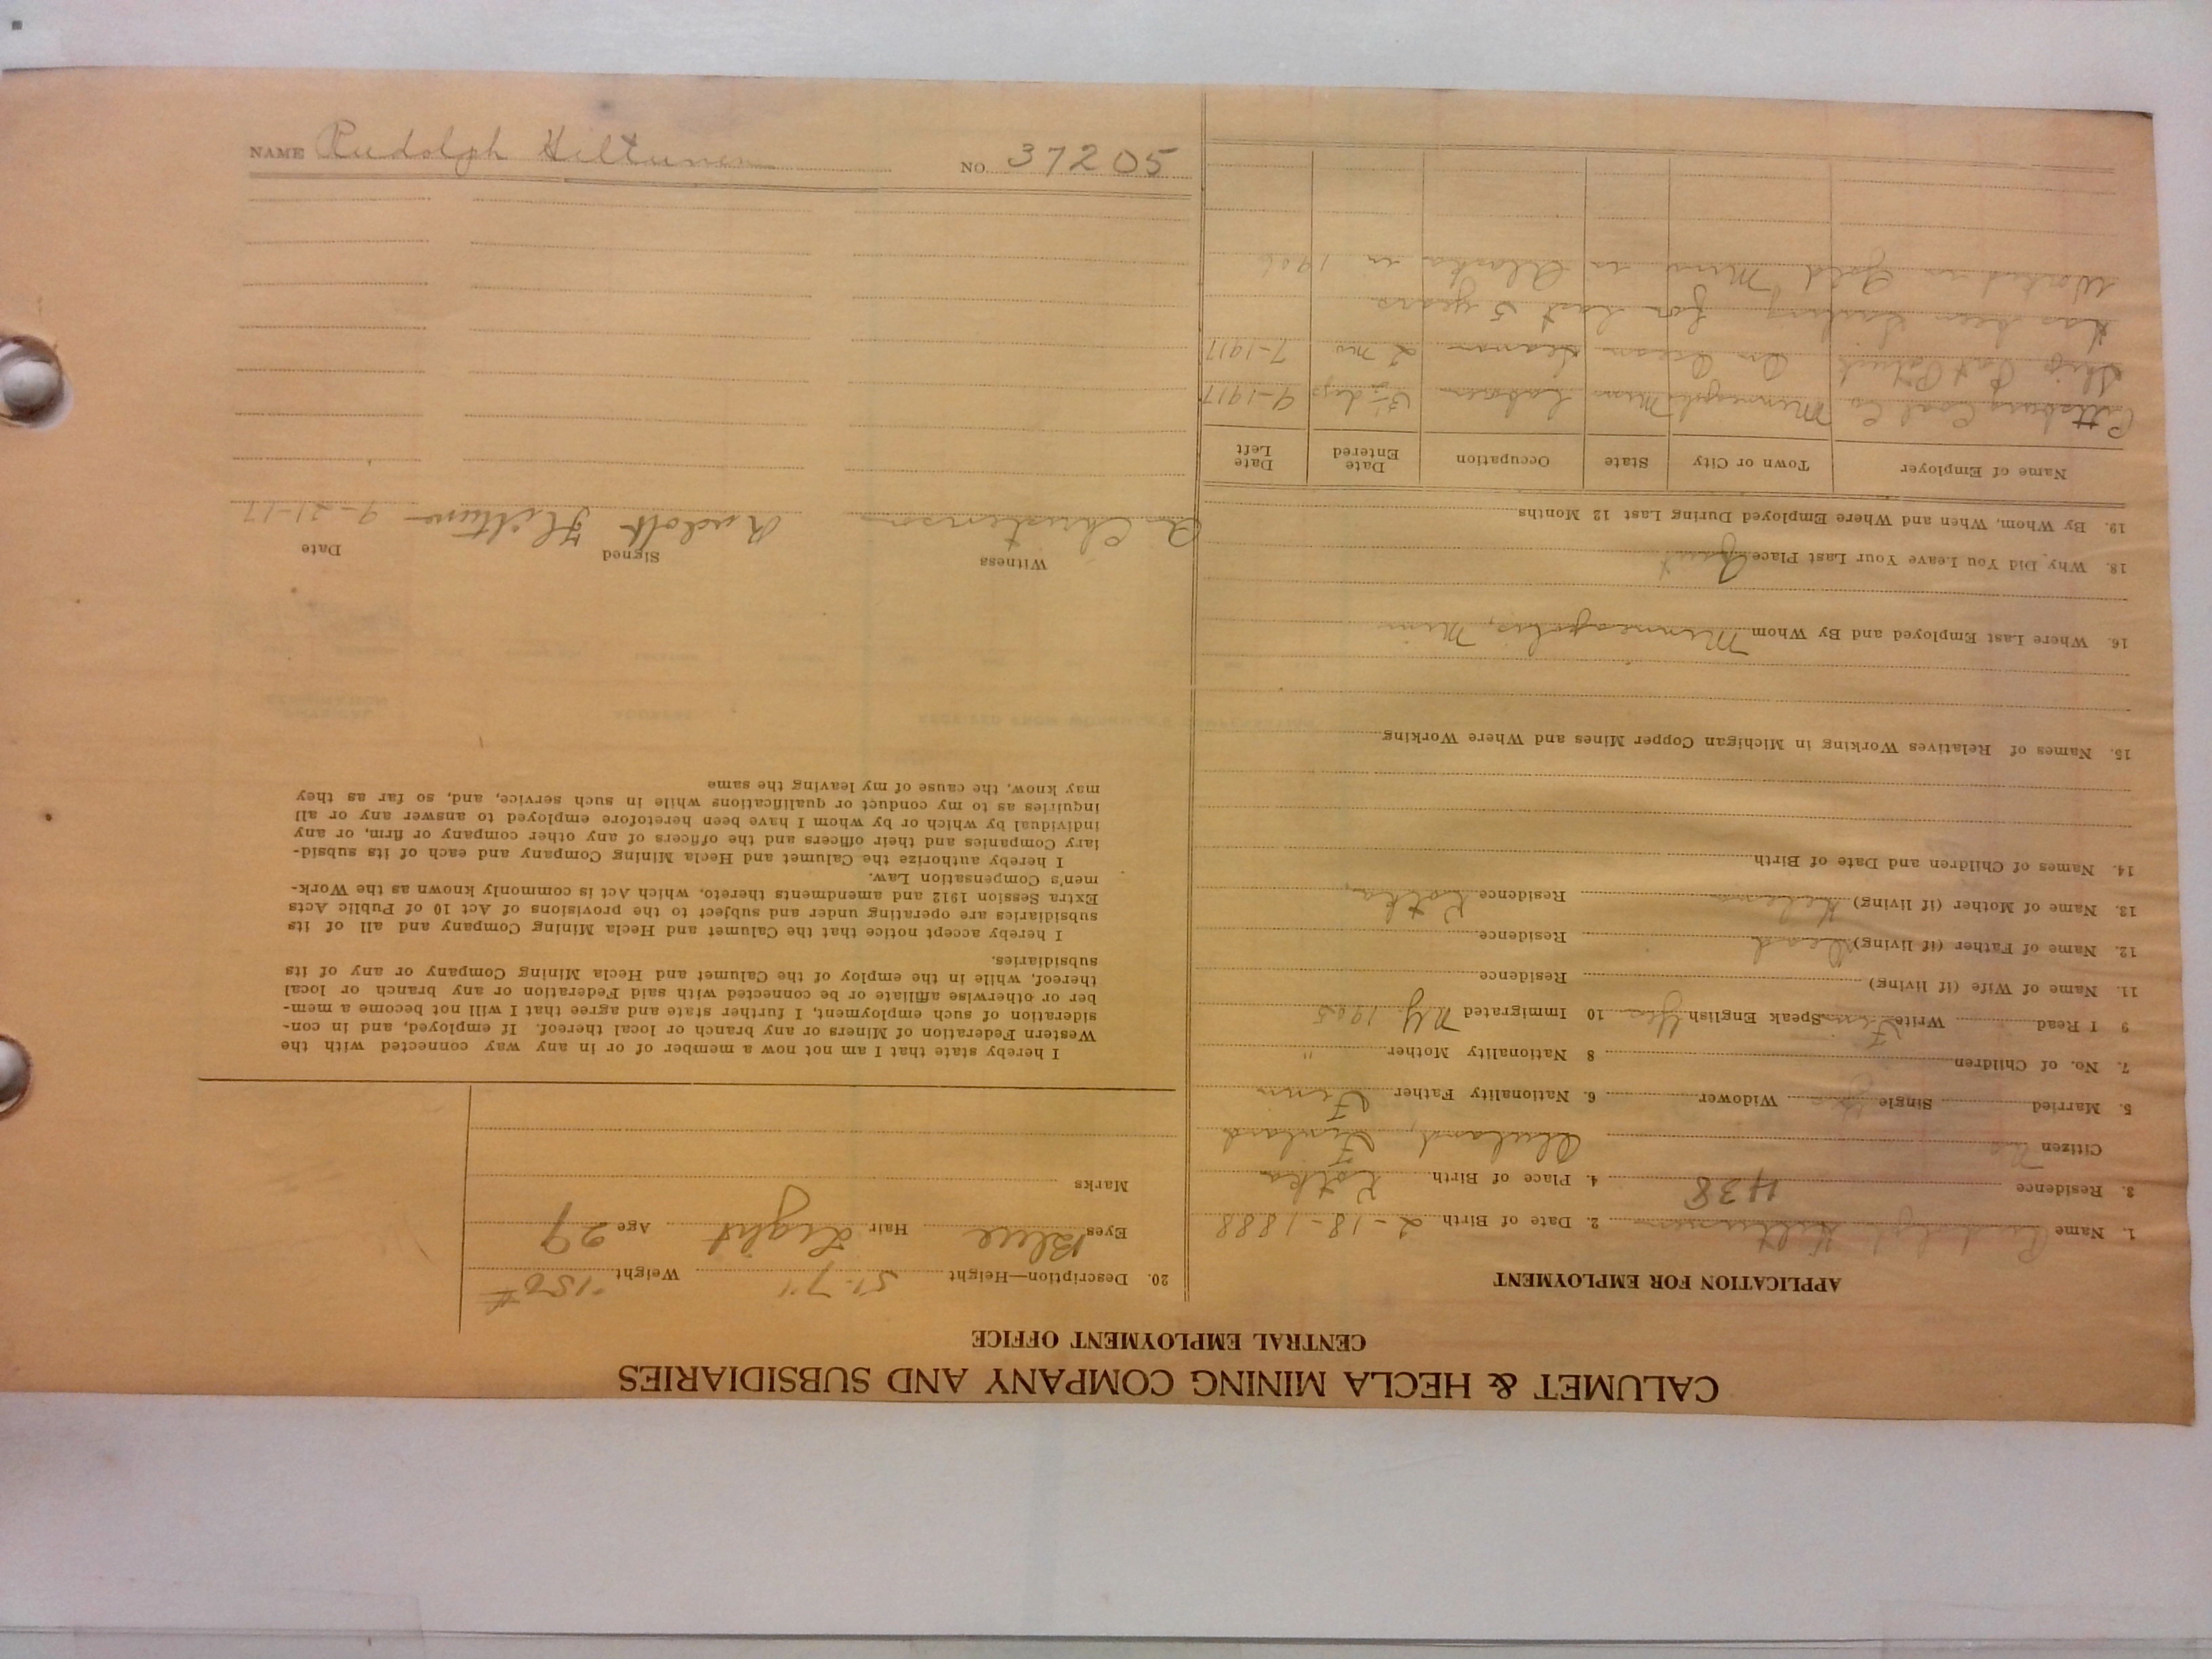 NAME Rudolph Hiltunen NO. 37205
CALUMET & HECLA MINING COMPANY AND SUBSIDIARIES
CENTRAL EMPLOYMENT OFFICE
APPLICATION FOR EMPLOYMENT
1. Name Rudolph Hiltunen 2. Date of Birth 2-18-1888
3. Residence 438 4. Place of Birth Kotka
Citizen no Finland
5. Married Single Widower 6. Nationality Father Finn
7. No. of Children 8 Nationality Mother "
9 I Read Write Finn Speak English Yes 10 Immigrated N.Y. 1905
11. Name of Wife (if living) Residence
12. Name of Father (if living) Dead Residence
13. Name of Mother (if living) Residence Kotka
14. Names of Children and Date of Birth
15. Names of Relatives Working in Michigan Copper Mines and Where Working
16. Where Last Employed and By Whom Minneapolis, Minn
18. Why Did You Leave Your Last Place Quit
19. By Whom, When and Where Employed During Last 12 Months
Name of Employer Town or City State Occupation Date Entered Date Left
Pittsburg Coal Co Minneapolis Minn Laborer 3½ days 9-1917
Ship On Ocean Seaman 2 mo 7-1917
Has been sailing for last 5 years
Worked in Gold Mine in Alaska in
20. Description—Height 5'-7" Weight 150#
Eyes Blue Hair Light Age 29
Marks
I hereby state that I am not now a member of or in any way connected with the
Western Federation of Miners or any branch or local thereof. If employed, and in con-
sideration of such employment, I further state and agree that I will not become a mem-
ber or otherwise affiliate or be connected with said Federation or any branch or local
thereof, while in the employ of the Calumet and Hecla Mining Company or any of its
subsidiaries.
I hereby accept notice that the Calumet and Hecla Mining Company and all of its
subsidiaries are operating under and subject to the provisions of Act 10 of Public Acts
Extra Session 1912 and amendments thereto, which Act is commonly known as the Work-
men's Compensation Law.
I hereby authorize the Calumet and Hecla Mining Company and each of its subsid-
iary Companies and their officers and the officers of any other company or firm, or any
individual by which or by whom I have been heretofore employed to answer any or all
inquiries as to my conduct or qualifications while in such service, and, so far as they
may know, the cause of my leaving the same
Witness Signed Date
Christenson Rudolh Hiltunen 9-21-17